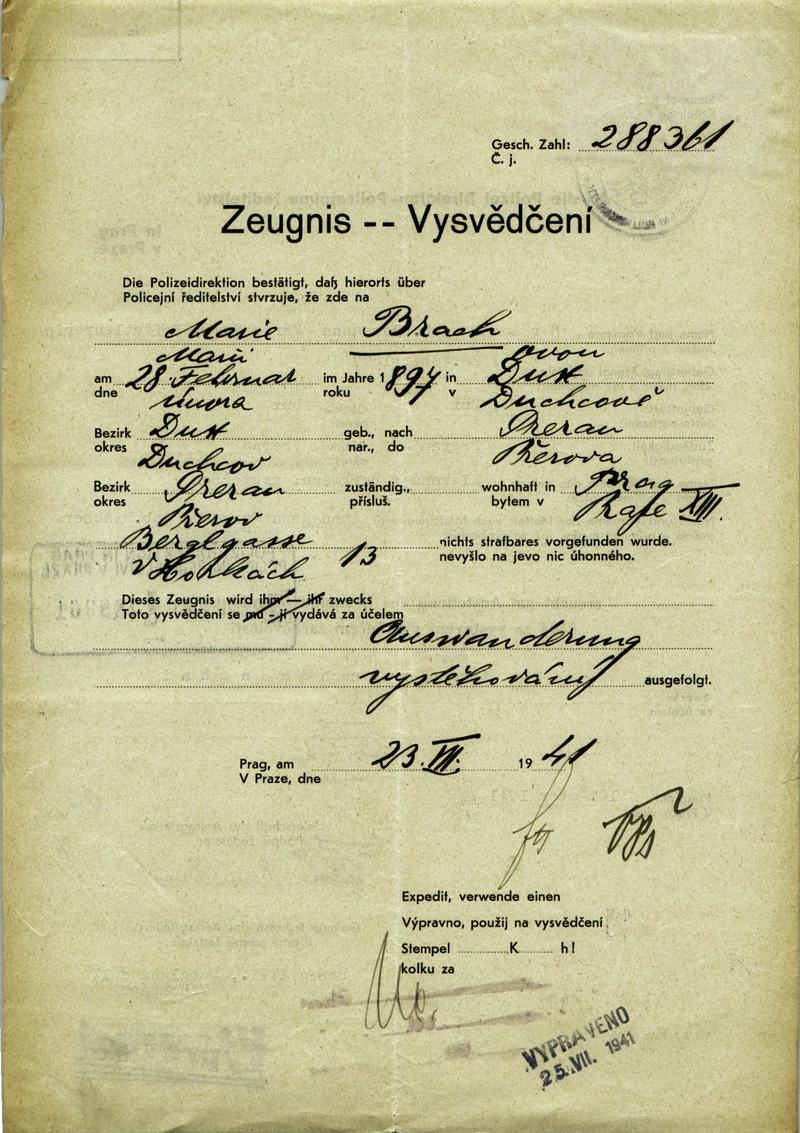 Gesch. Zahl: 288361
Č. j.
Zeugnis -- Vysvědčení
Die Polizeidirektion bestätigt, daß hierorts über
Policejní ředitelství stvrzuje, že zde na
Marie Brach
Marii ovou
am 28 Februar im Jahre 1897 in Dux
dne února roku v Duchcově
Bezirk Dux geb., nach Preran
okres Duchcov nar., do Přerova
Bezirk Preran zuständig., wohnhaft in Prag
okres Přerov přísluš. bytem v Praze XIII.
Berglgasse nichts strafbares vorgefunden wurde.
V Horkách 13 nevyšlo na jevo nic úhonného.
Dieses Zeugnis wird ihm — ihr zwecks
Toto vysvědčení se mu - jí vydává za účelem
Auswanderung
vystěhování ausgefolgt.
Prag, am 23. VII. 1941
V Praze, dne
Expedit, verwende einen
Výpravno, použij na vysvědčení
Stempel K h!
kolku za
VYPRAVENO
25. VII. 1941